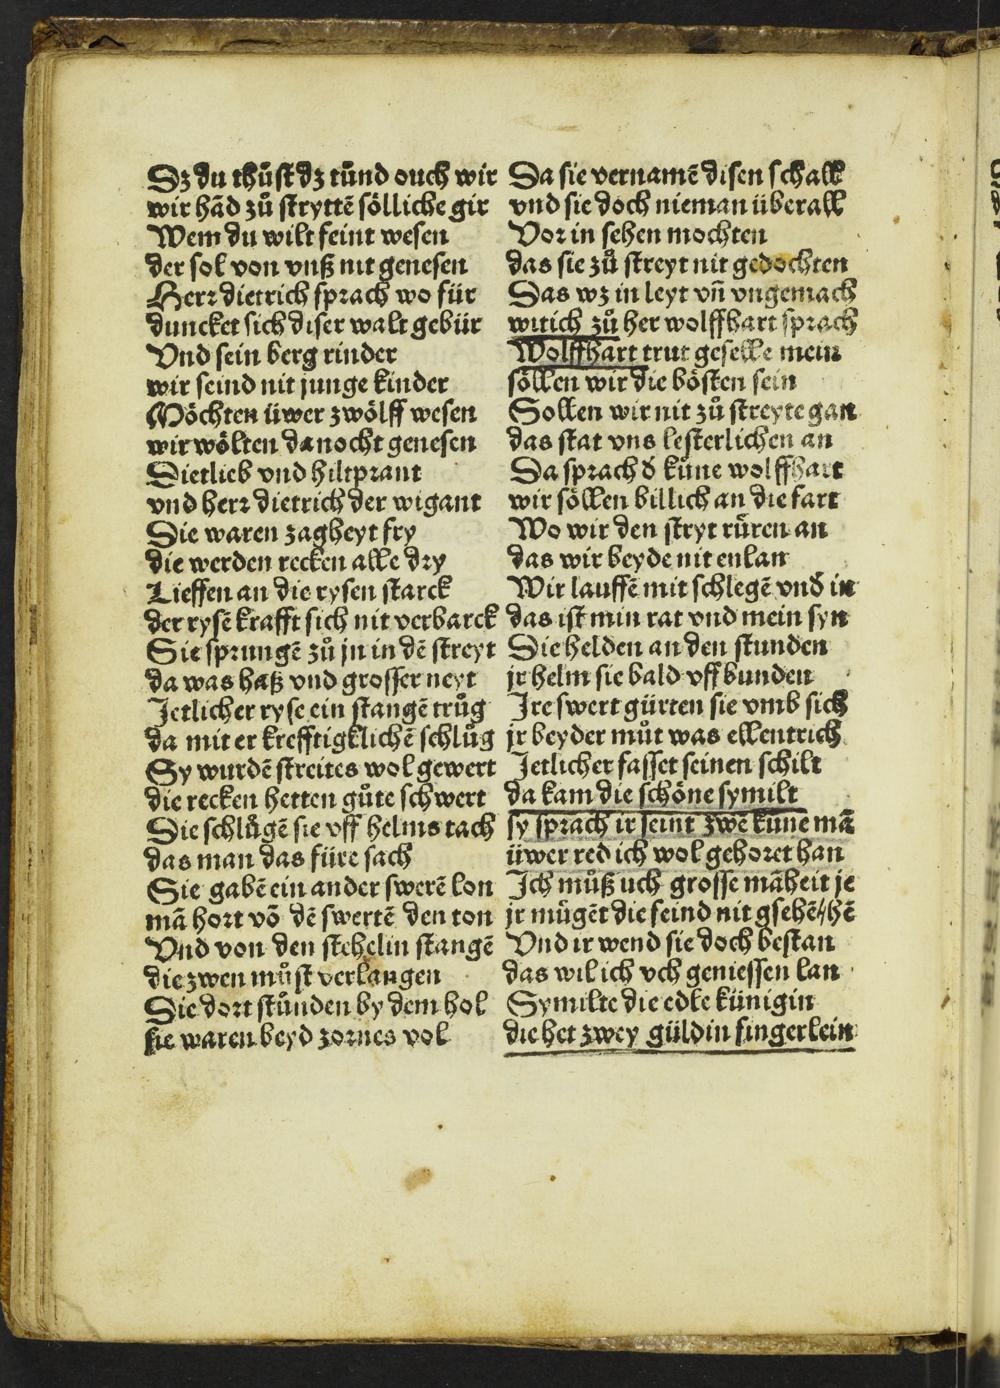 Dz du thůst dz tůnd ouch wir
wir hād zů stryttē sölliche gir
Wem du wilt feint wesen
der sol von vnß nit genesen
Herr dietrich sprach wo für
duncket sich diser walt gebür
Vnd sein berg rinder
wir seind nit junge kinder
Möchten üwer zwölff wesen
wir wölten danocht genesen
Dietlieb vnd hiltprant
vnd herr dietrich der wigant
Die waren zagheyt fry
die werden recken alle dry
Lieffen an die rysen starck
der rysē krafft sich nit verbarck
Sie sprungē zů jn in dē streyt
da was haß vnd grosser neyt
Jetlicher ryse ein stangē trůg
da mit er krefftigklichē schlůg
Sy wurdē streites wol gewert
die recken hetten gůte schwert
Sie schlůgē sie vff helms tach
das man das füre sach
Sie gabē ein ander swerē lon
mā hort vō dē swertē den ton
Vnd von den stehelin stangē
die zwen můst verlangen
Die dort stůnden by dem hol
sie waren beyd zornes vol
Da sie vernamē disen schall
vnd sie doch nieman überall
Vor in sehen mochten
das sie zů streyt nit gedochten
Das wz in leyt vn̄ vngemach
witich zů her wolffhart sprach
Wolffhart trut geselle mein
söllen wir die bösten sein
Sollen wir nit zů streyte gan
das stat vns lesterlichen an
Da sprach d̄ küne wolffhart
wir söllen billich an die fart
Wo wir den stryt rüren an
das wir beyde nit enlan
Wir lauffē mit schlegē vnd̄ in
das ist min rat vnd mein syn
Die helden an den stunden
jr helm sie bald vff bunden
Jre swert gürten sie vmb sich
jr beyder můt was ellentrich
Jetlicher fasset seinen schilt
da kam die schöne symilt
sy sprach ir seint zwē küne mā
üwer red ich wol gehoret han
Jch můß uch grosse māheit je
jr mügēt die feind nit gsehē//hē
Vnd ir wend sie doch bestan
das wil ich vch geniessen lan
Symilte die edle künigin
die het zwey güldin fingerlein